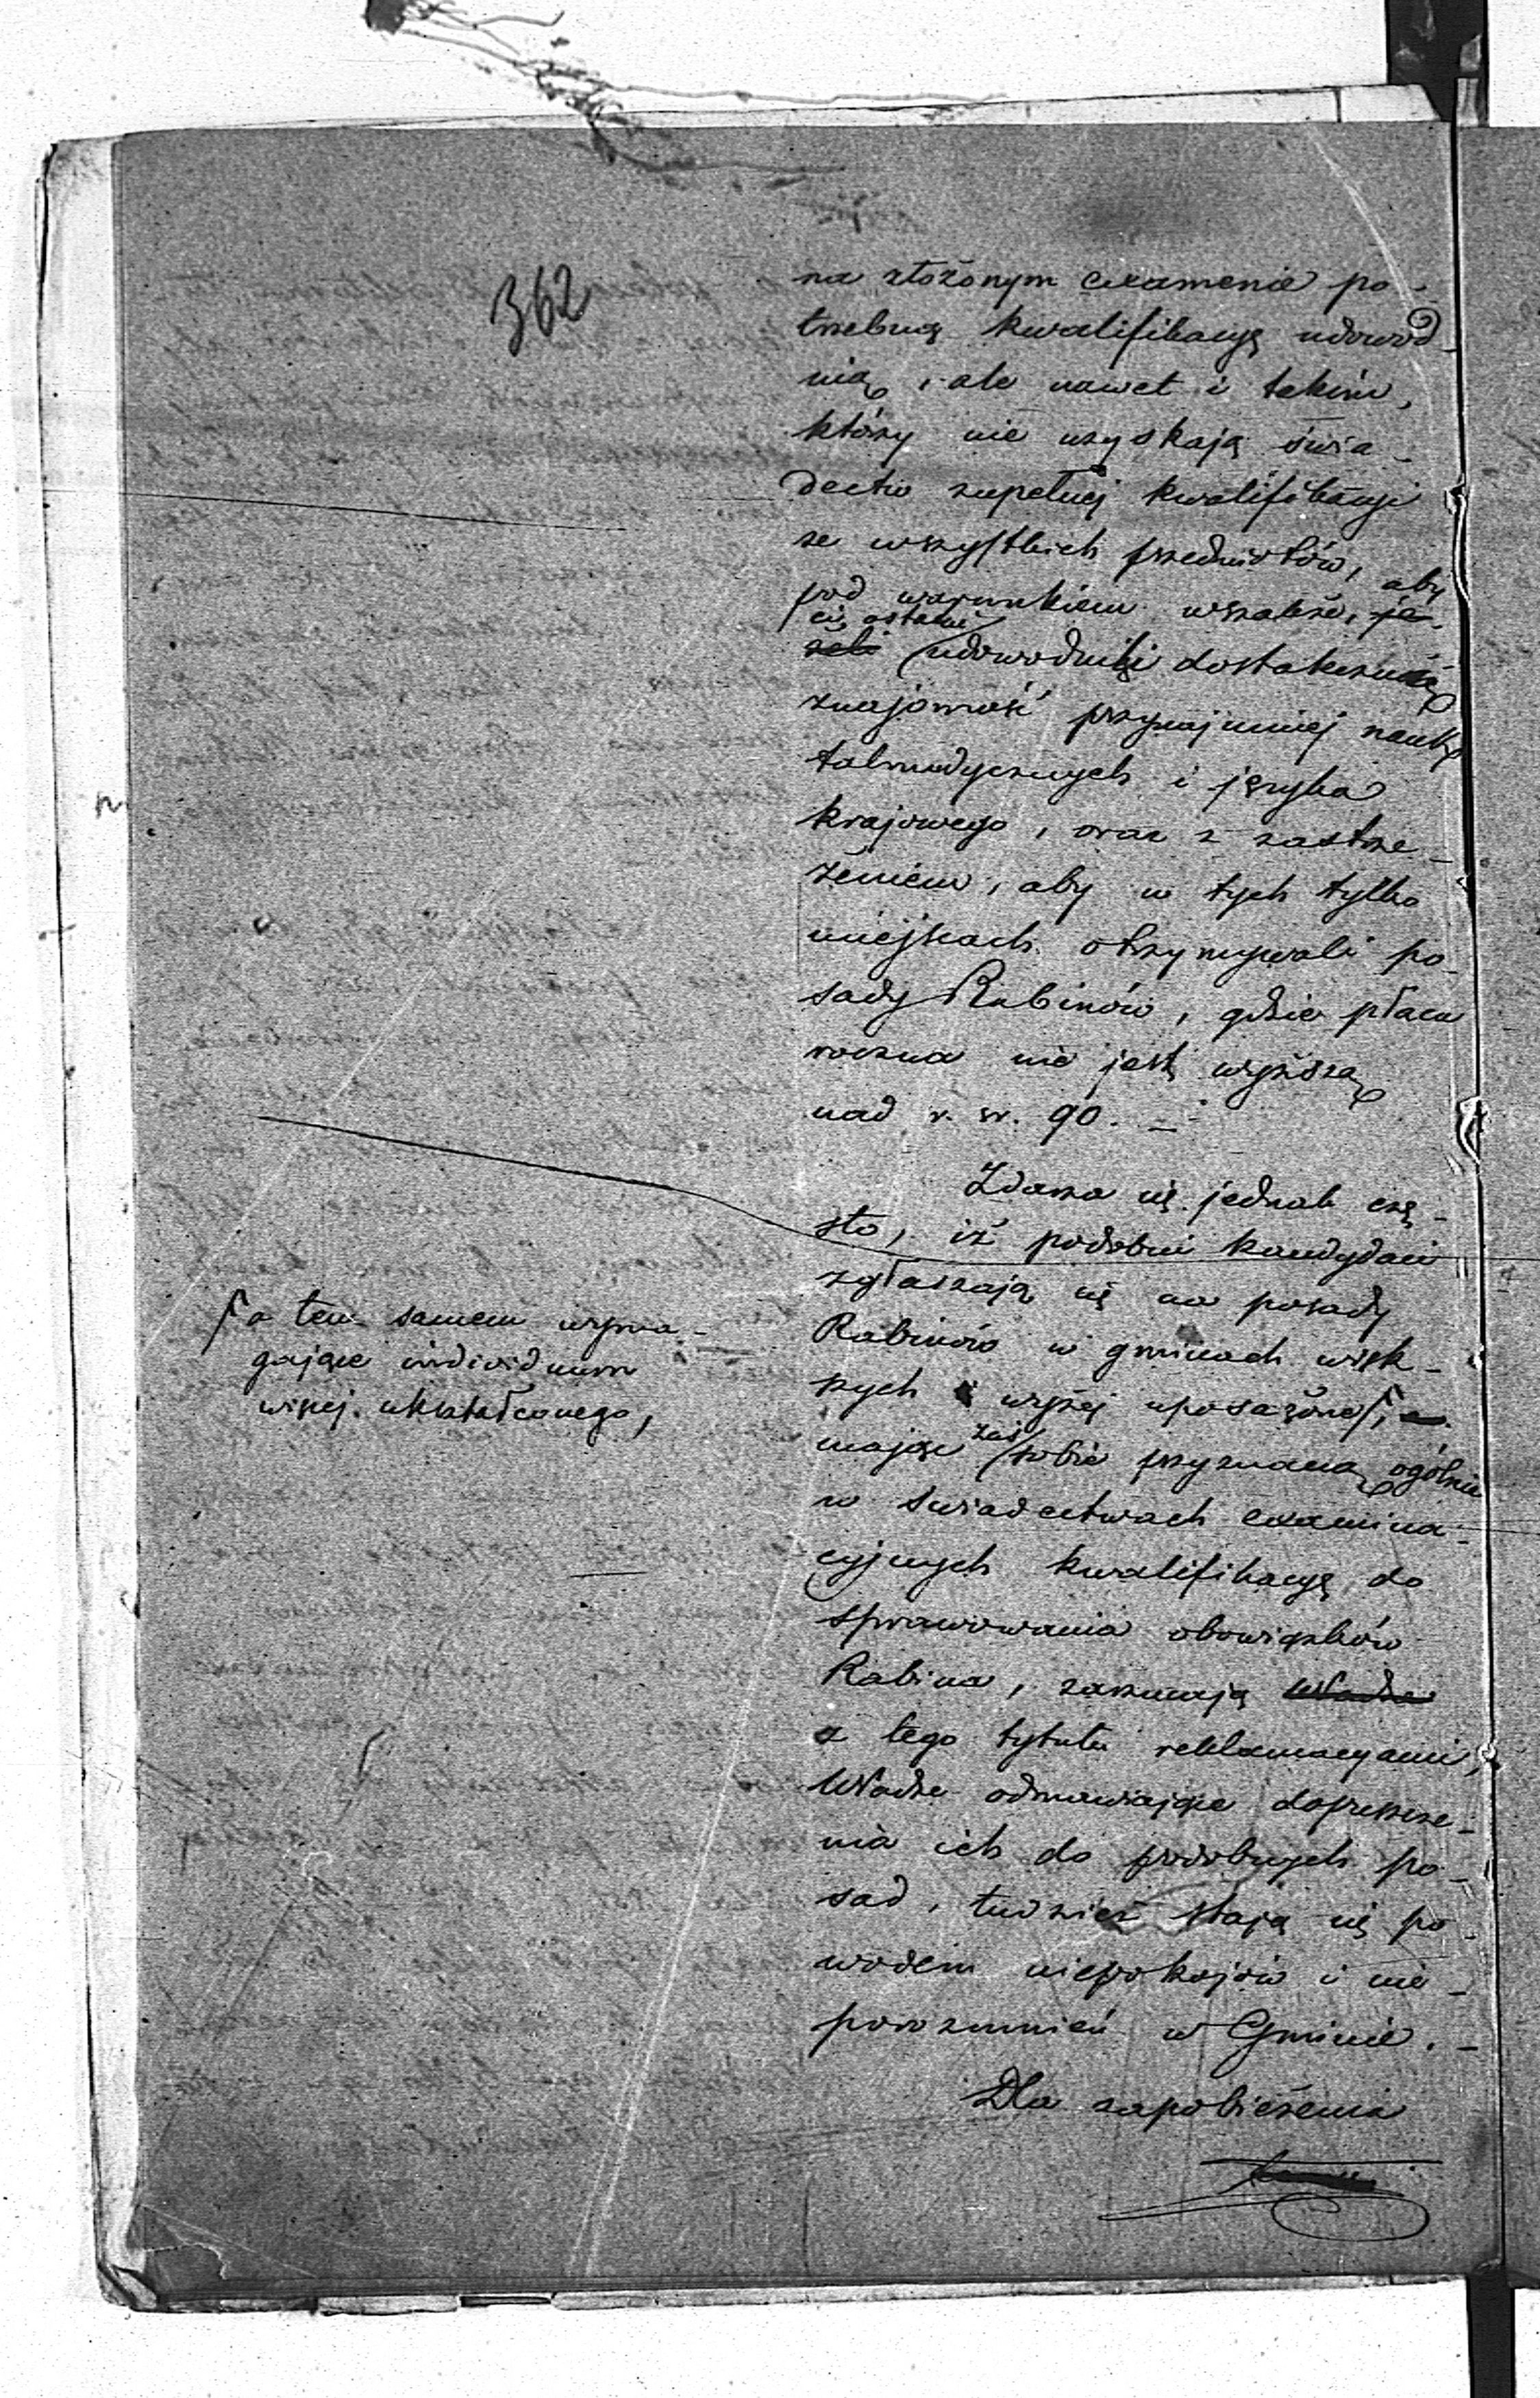 362
na złożonym examenie po-
trzebną kwalifikacyę udowod-
nią, ale nawet i takim,
którzy nie uzyskają świa-
dectw zupełnej kwalifikacyi
ze wszystkich przedmiotów,
pod warunkiem wszakże, je- aby
żeli ci ostatni udowodnili dostateczną
znajomość przynajmniej nauk
talmudycznych i języka
krajowego, oraz z zastrze-
żeniem, aby w tych tylko
miejscach otrzymywali po-
sady Rabinów, gdzie płaca
roczna nie jest wyższą
nad r. sr. 90. —
Zdarza się jednak czę-
sto, iż podobni kandydaci
zgłaszają się na posady
Rabinów w gminach więk-
szych i wyżej uposażone,
mając zaś sobie przyznaną ogólnie
w świadectwach examina-
cyjnych kwalifikacyę do
sprawowania obowiązków
Rabina, zarzucają Władze
z tego tytułu reklamacyami,
Władze odmawiające dopuszcze-
nia ich do podobnych po-
sad, tudzież stają się po-
wodem niepokojów i nie-
porozumień w Gminie. —
Dla zapobieżenia
a tem samem wyma-
gające individuum
więcej ukształconego,